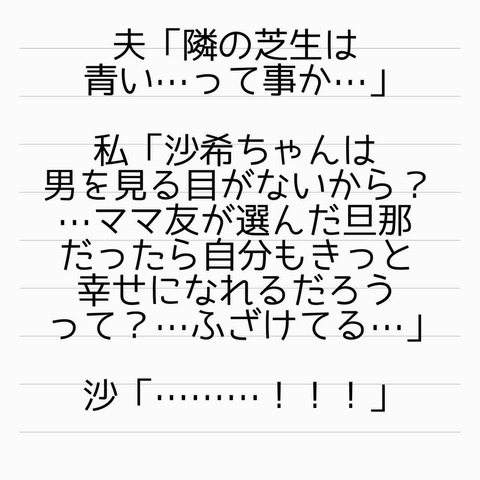 夫「隣の芝生は
青い…って事か…」
私「沙希ちゃんは
男を見る目がないから？
…ママ友が選んだ旦那
だったら自分もきっと
幸せになれるだろう
って？…ふざけてる…」
沙「………！！！」